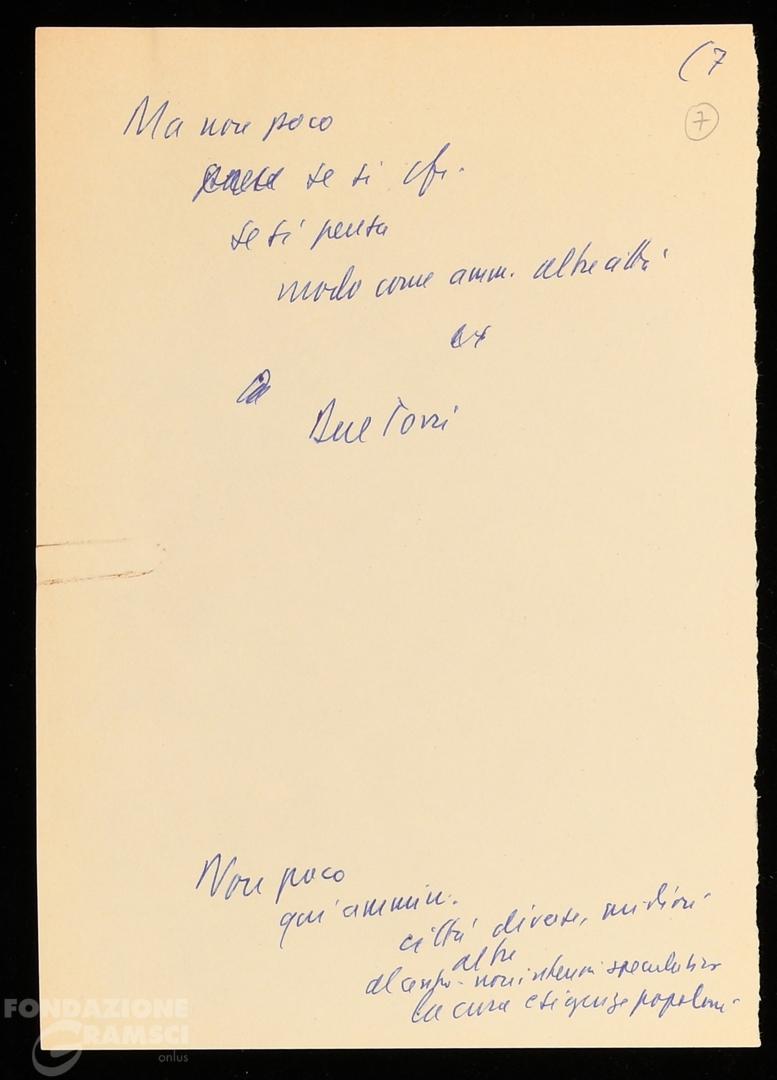 (7
7
Ma non poco
se si cfr.
se si pensa
modo come amm. altre città
Due Torri
Non poco
qui ammin.
città diverse, migliori
altre
al centro - non interessi speculativi
la cura esigenze popolari
FONDAZIONE
GRAMSCI
onlus